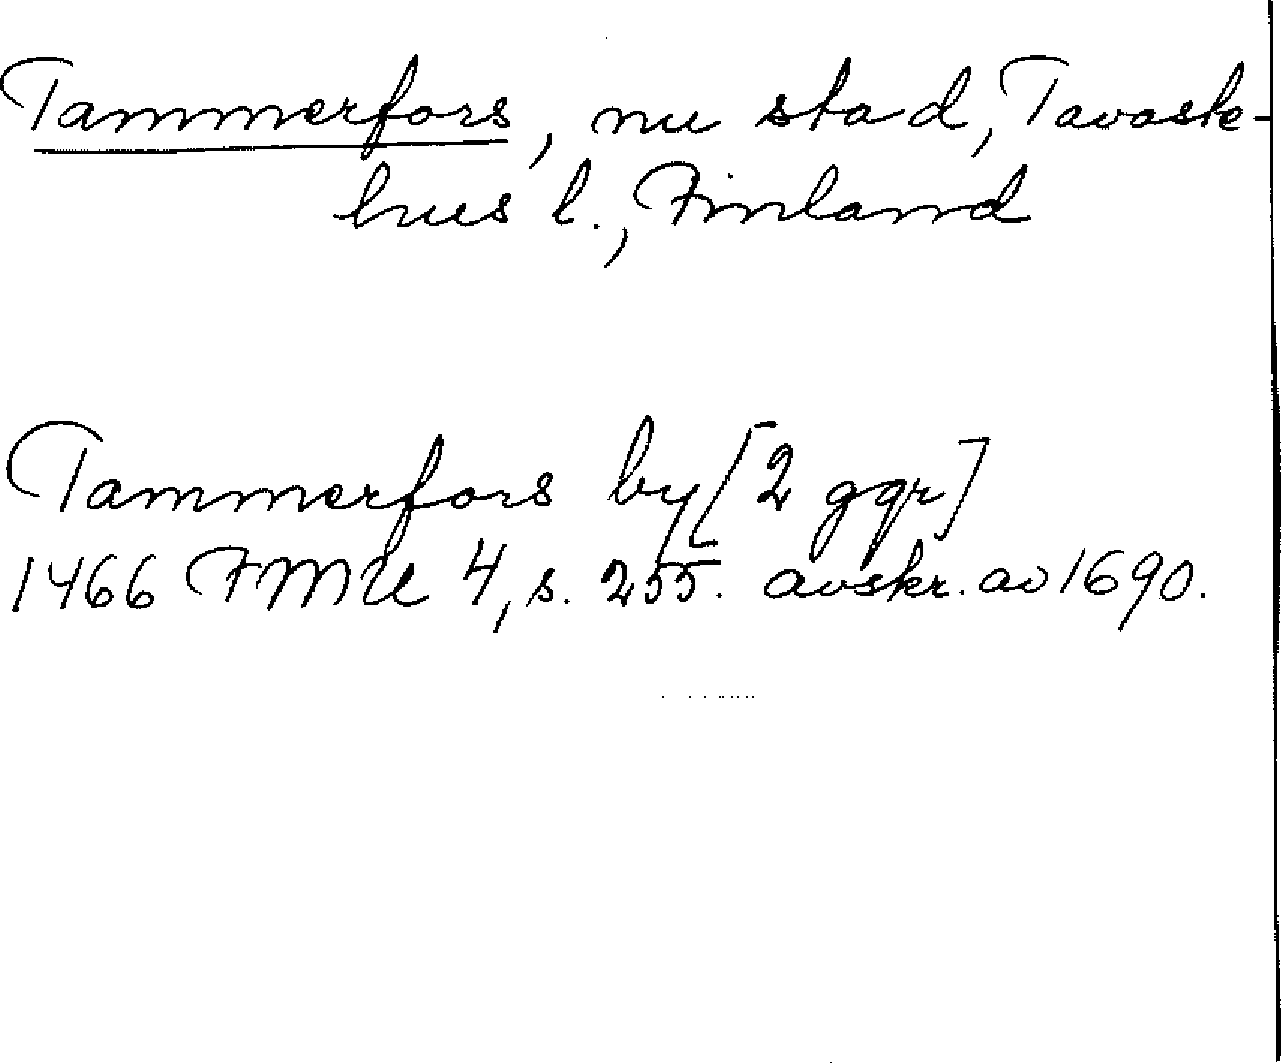 Tammerfors, nu stad, Tavaste-
hus l., Finland
Tammerfors by [2 ggr]
1466 FMU 4, s. 255. avskr. av 1690.